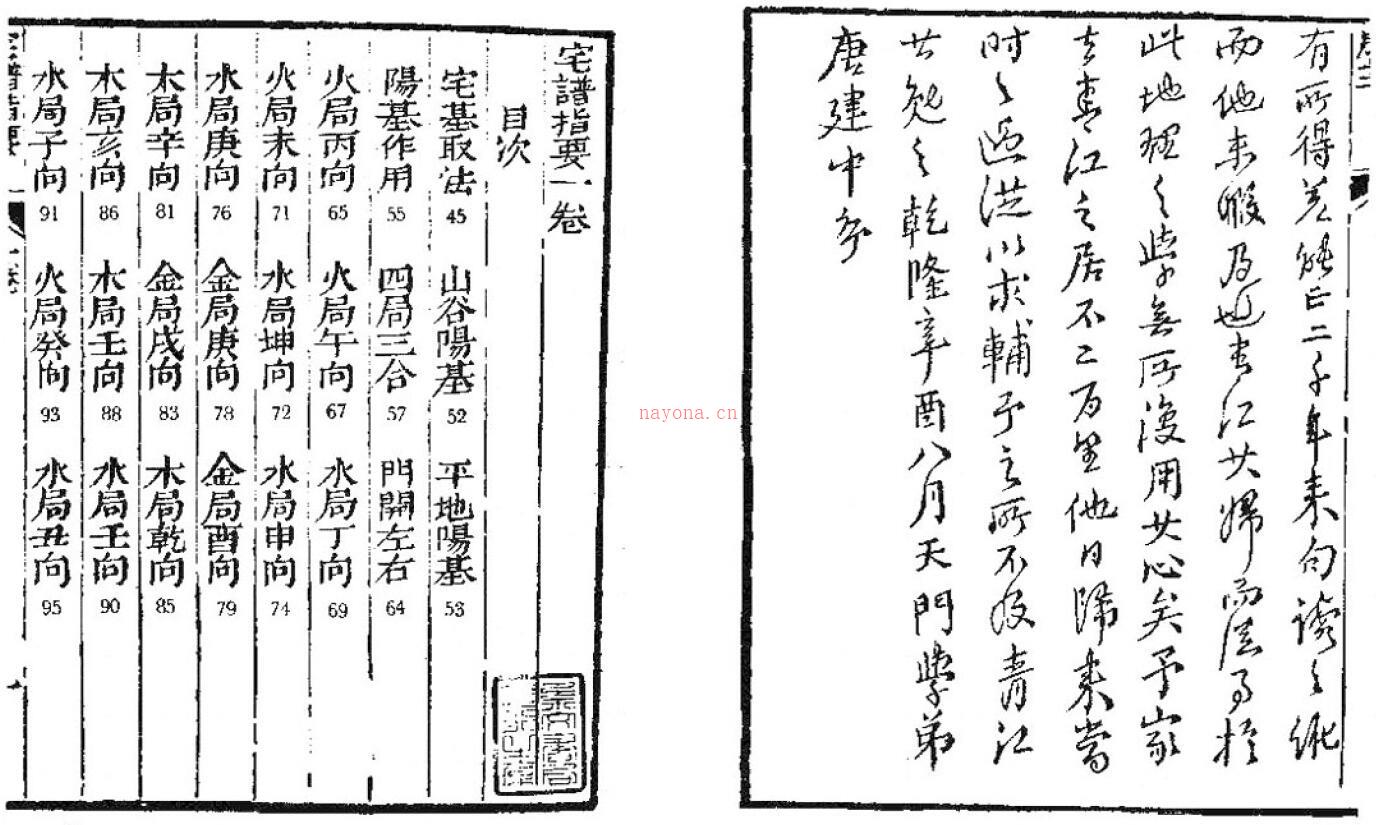 有所得差能亡二千年來句讀之紕
而他未暇及也青江其歸而
此地理之學無所復用其心矣予家
去青江之居不二百里他日歸來當
時之過從以求輔予之所不及青江
其勉之乾隆辛酉八月天門學弟
唐建中
宅譜指要一卷
目次
宅基取法 45 山谷陽基 52 平地陽基 53
陽基作用 55 四局三合 57 門開左右 64
火局丙向 65 火局午向 67 水局丁向 69
火局未向 71 水局坤向 72 水局申向 74
水局庚向 76 金局庚向 78 金局酉向 79
木局辛向 81 金局戌向 83 木局乾向 85
木局亥向 86 木局壬向 88 水局壬向 90
水局子向 91 火局癸向 93 水局丑向 95
宅譜指要
nayona.cn